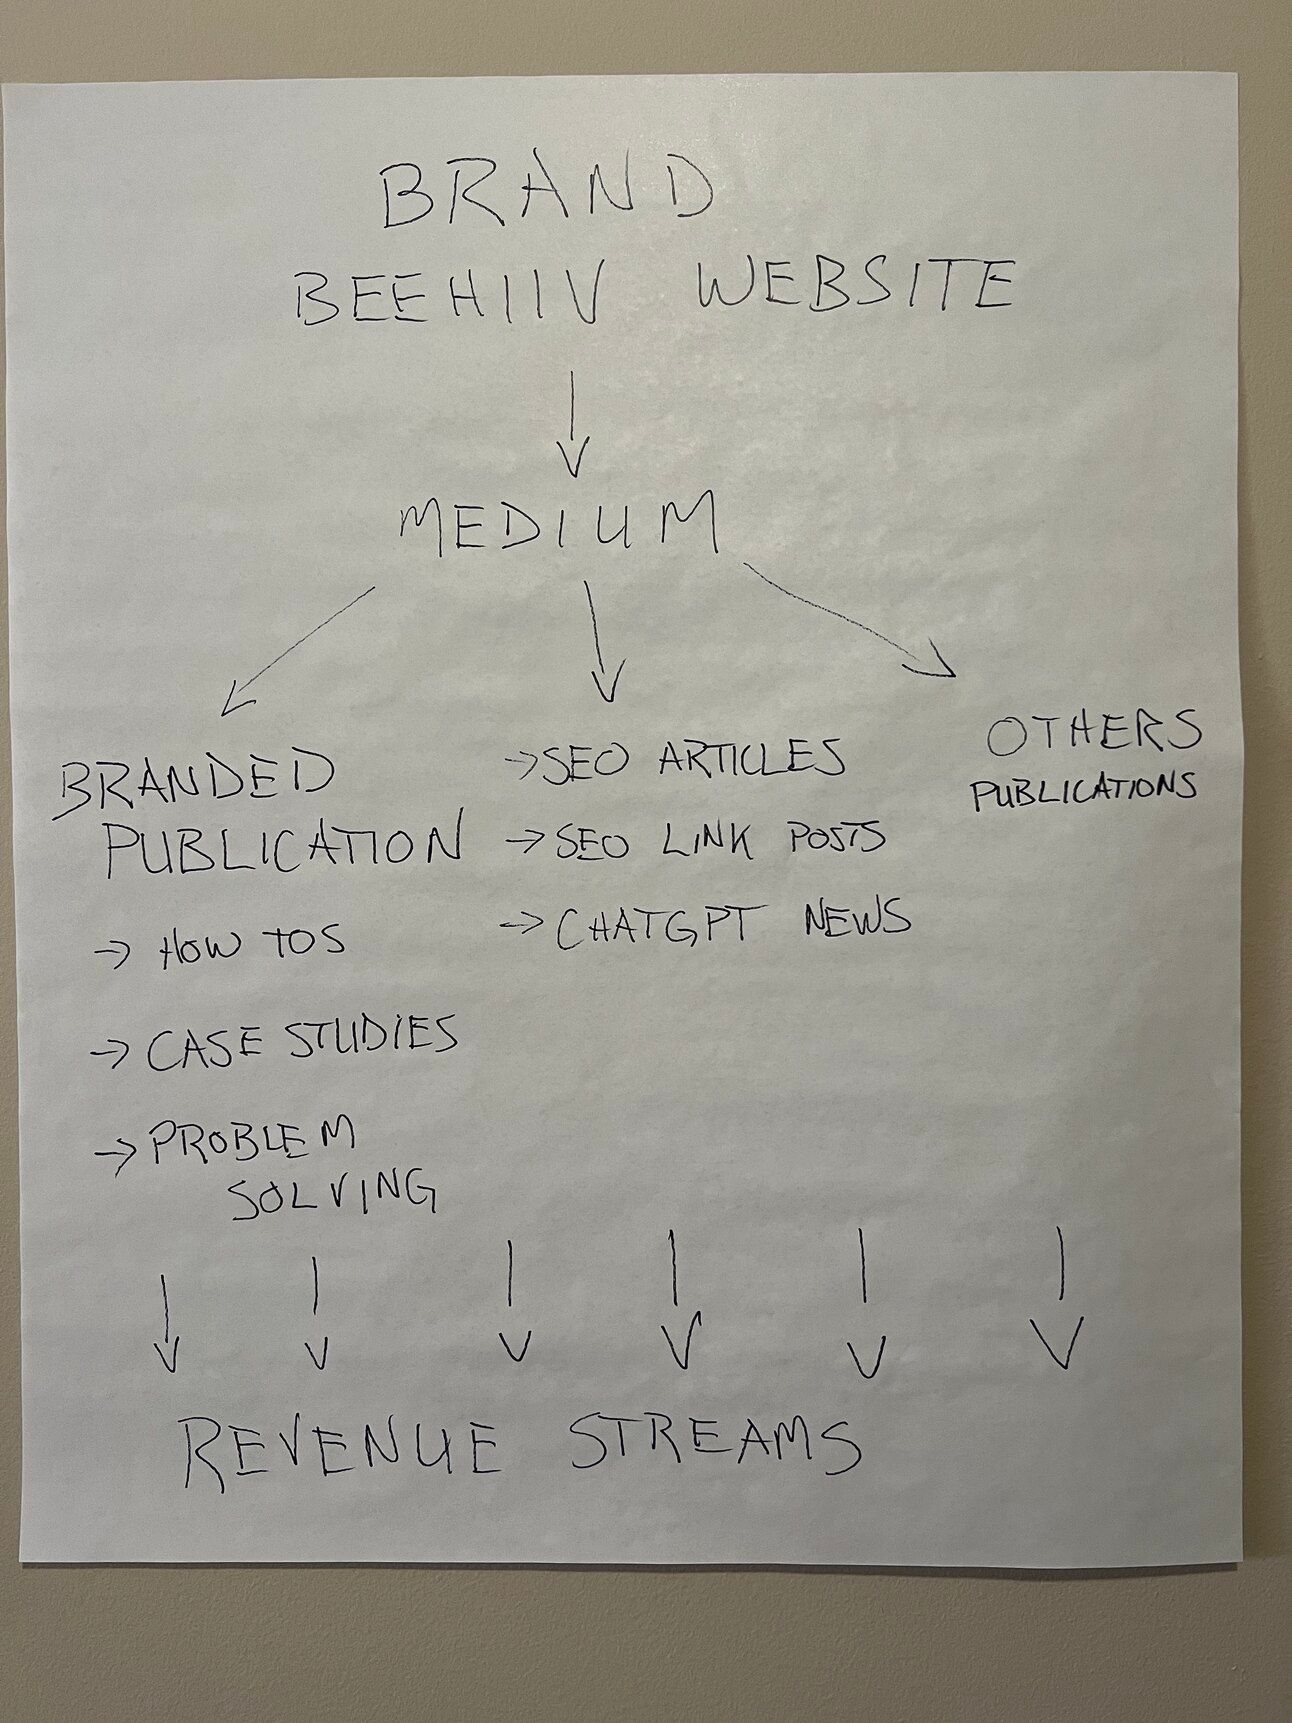 BRAND
BEEHIIV WEBSITE
MEDIUM
BRANDED
PUBLICATION
→ HOW TOS
→ CASE STUDIES
→ PROBLEM
SOLVING
→ SEO ARTICLES
→ SEO LINK POSTS
→ CHATGPT NEWS
OTHERS
PUBLICATIONS
REVENUE STREAMS